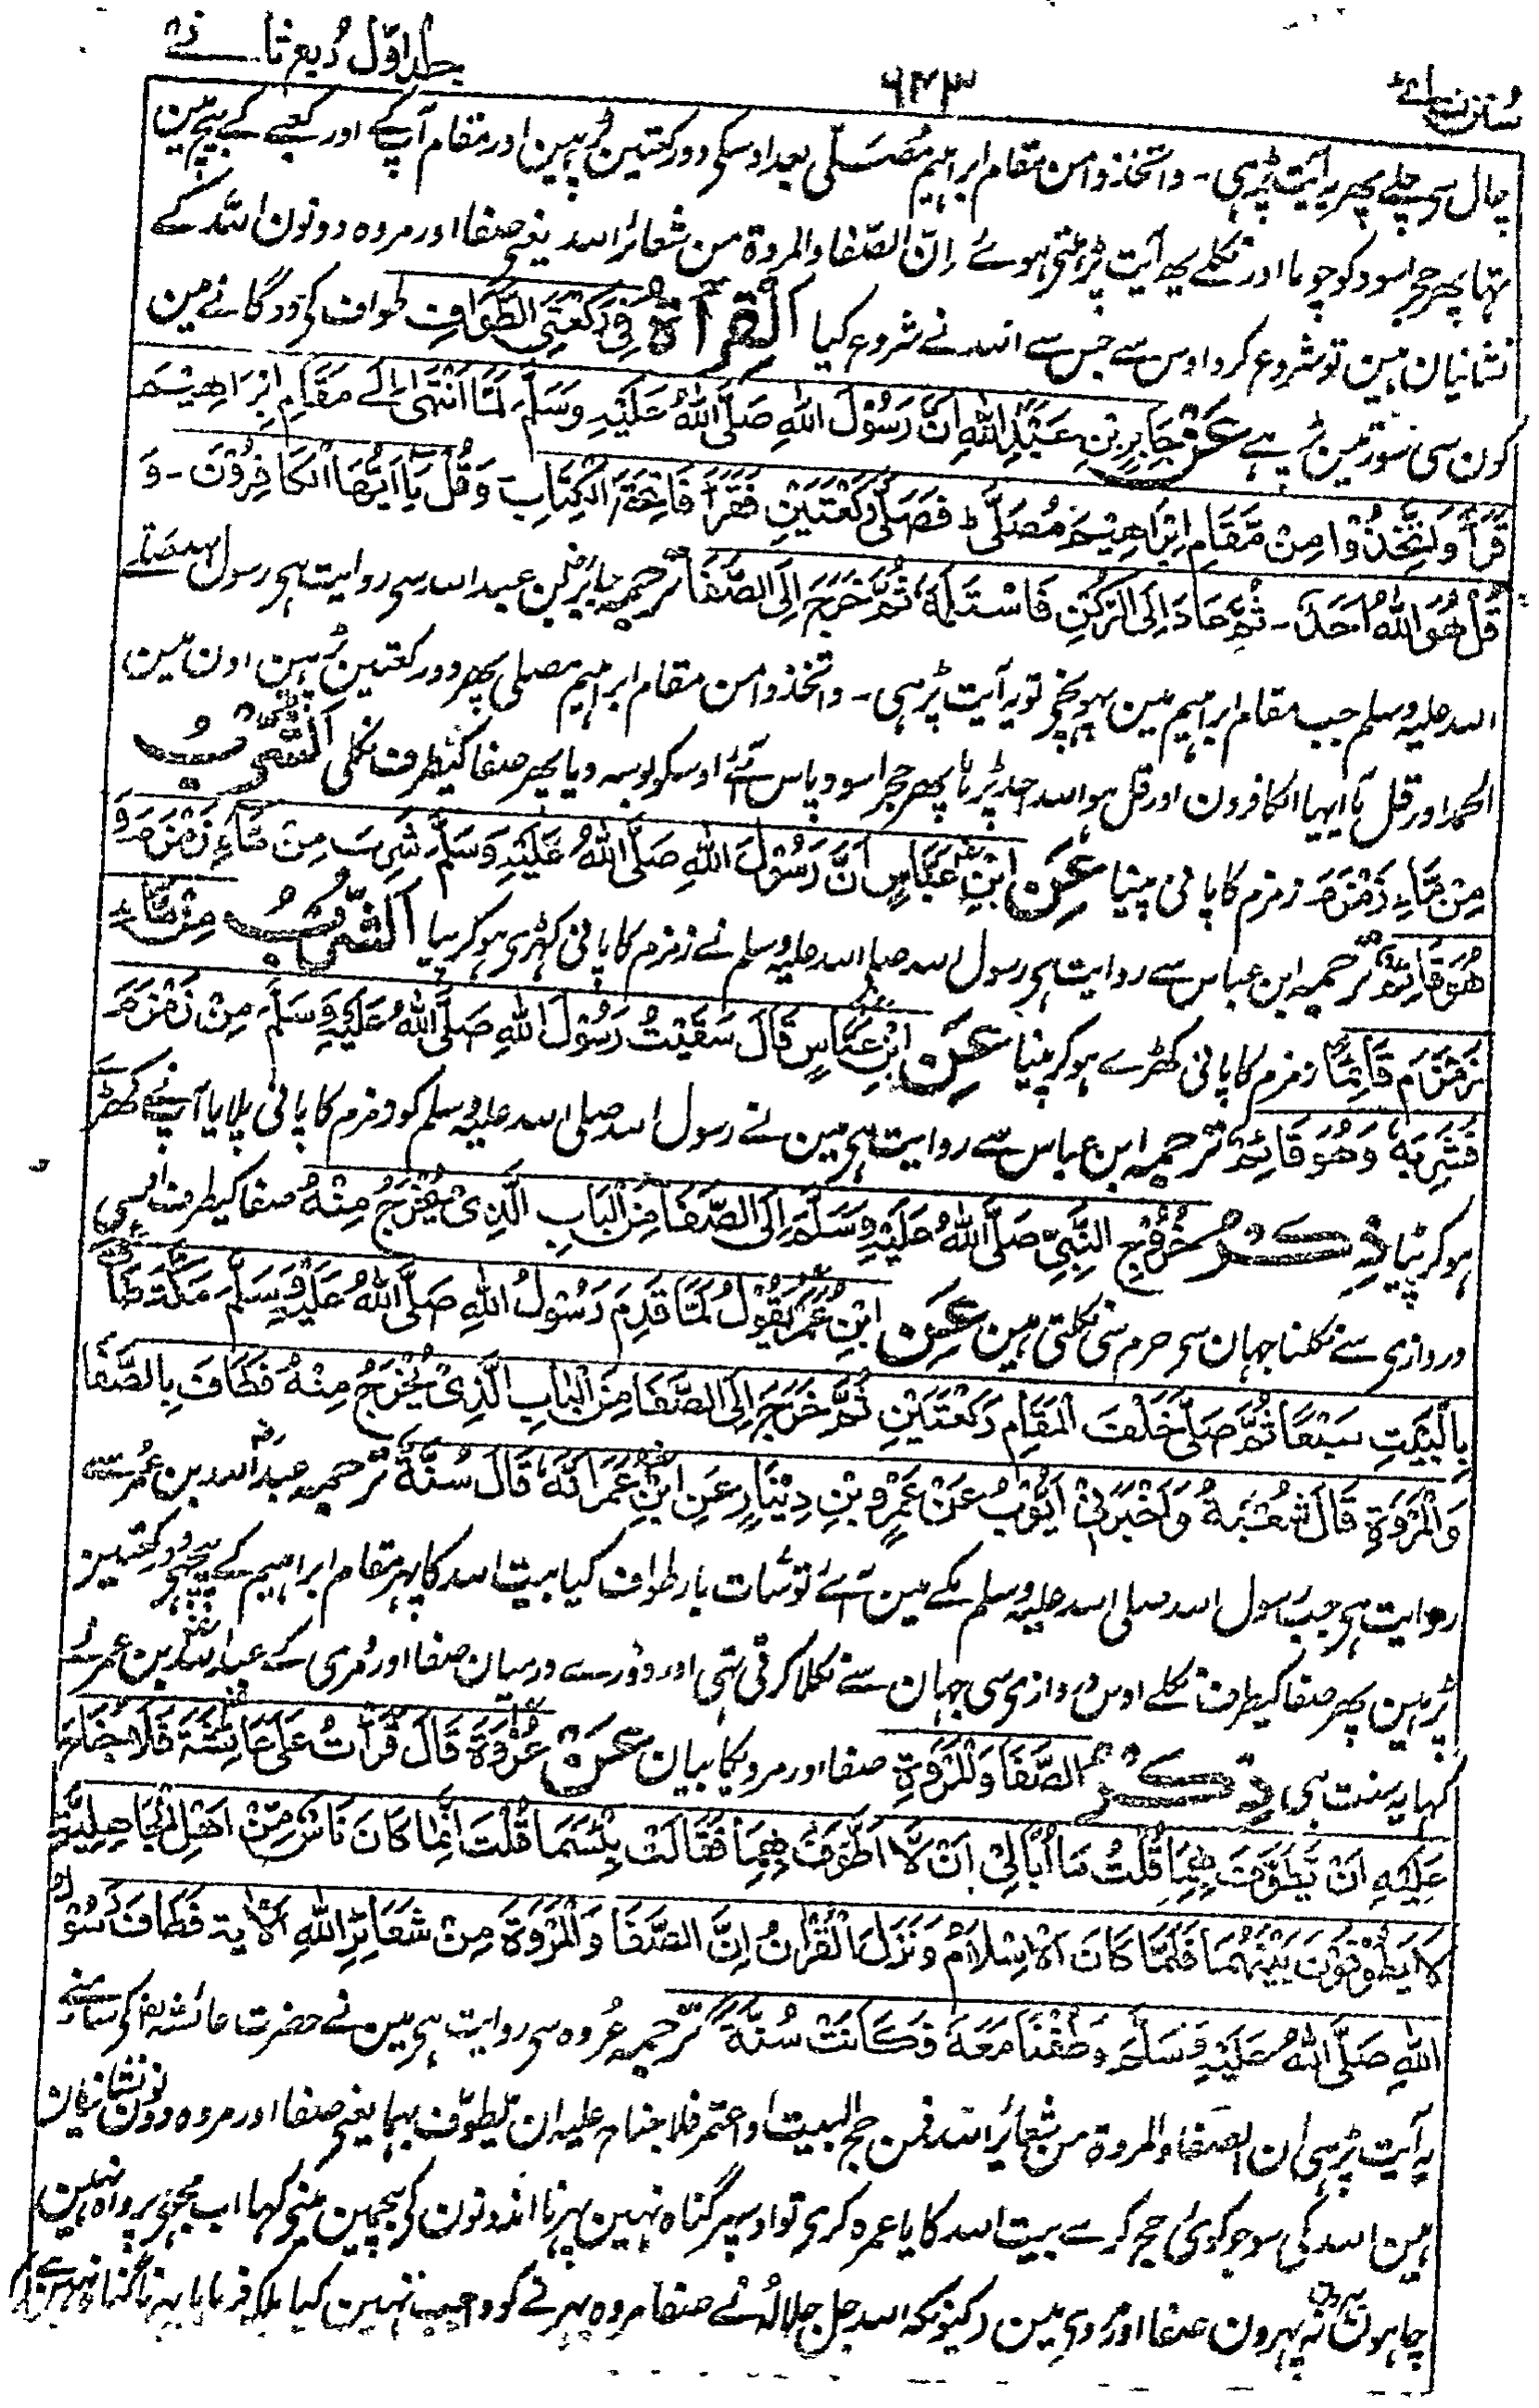 سُنن نسائے ۶۴۳ جلد اوّل رُبع ثانے
چال سے چلے پھر یہ آیت پڑہی۔ واتخذوا من مقام ابراہیم مصلی بعد اوسکی دو رکعتین پڑہین اور مقام آپکے اور کعبے کے بیچ مین
تہا پھر حجر اسود کو چوما اور نکلے یہ آیت پڑہتی ہوئے اِنّ الصّفا والمروۃ من شعائر اللہ یعنی صفا اور مروہ دونون اللہ کے
نشانیان ہین تو شروع کرو اوس سے جس سے اللہ نے شروع کیا اَلْقِرَآءَۃُ فِیْ رَکْعَتَیِ الطَّوَافِ طواف کی دوگانے مین
کون سی سورتین پڑہے عَنْ جَابِرِ بْنِ عَبْدِ اللّٰہِ اَنَّ رَسُوْلَ اللّٰہِ صَلَّی اللّٰہُ عَلَیْہِ وَسَلَّمَ لَمَّا انْتَہٰی اِلٰے مَقَامِ اِبْرَاھِیْمَ
قَرَأَ وَاتَّخِذُوْا مِنْ مَّقَامِ اِبْرَاھِیْمَ مُصَلًّی ط فَصَلّٰی رَکْعَتَیْنِ فَقَرَأَ فَاتِحَۃَ الْکِتَابِ وَقُلْ یٰٓاَیُّہَا الْکَافِرُوْنَ۔ وَ
قُلْ ھُوَ اللّٰہُ اَحَدٌ۔ ثُمَّ عَادَ اِلَی الرُّکْنِ فَاسْتَلَمَہٗ ثُمَّ خَرَجَ اِلَی الصَّفَا ترجمہ جابرؓ بن عبد اللہ سے روایت ہے رسول اللہ صلے
اللہ علیہ وسلم جب مقام ابراہیم مین پہونچی تو یہ آیت پڑہی۔ واتخذوا من مقام ابراہیم مصلی پھر دو رکعتین پڑہین اون مین
الحمد اور قل یا ایہا الکافرون اور قل ہو اللہ احد پڑہا پھر حجر اسود پاس آئے اوسکو بوسہ دیا پھر صفا کیطرف نکلی اَلشُّرْبُ
مِنْ مَّآءِ زَمْزَمَ زمزم کا پانی پینا عَنِ ابْنِ عَبَّاسٍ اَنَّ رَسُوْلَ اللّٰہِ صَلَّی اللّٰہُ عَلَیْہِ وَسَلَّمَ شَرِبَ مِنْ مَّآءِ زَمْزَمَ وَ
ھُوَ قَائِمٌ ترجمہ ابن عباس سے روایت ہے رسول اللہ صلے اللہ علیہ وسلم نے زمزم کا پانی کہڑی ہو کر پیا اَلشُّرْبُ مِنْ مَّآءِ
زَمْزَمَ قَائِمًا زمزم کا پانی کھڑے ہو کر پینا عَنِ ابْنِ عَبَّاسٍ قَالَ سَقَیْتُ رَسُوْلَ اللّٰہِ صَلَّی اللّٰہُ عَلَیْہِ وَسَلَّمَ مِنْ زَمْزَمَ
فَشَرِبَہٗ وَھُوَ قَائِمٌ ترجمہ ابن عباس سے روایت ہے مین نے رسول اللہ صلی اللہ علیہ وسلم کو زمزم کا پانی پلایا آپنے کھڑے
ہو کر پیا ذِکْرُ خُرُوْجِ النَّبِیِّ صَلَّی اللّٰہُ عَلَیْہِ وَسَلَّمَ اِلَی الصَّفَا مِنَ الْبَابِ الَّذِیْ یُخْرَجُ مِنْہُ صفا کیطرف اوسی
دروازی سے نکلنا جہان سے حرم سی نکلتی ہین عَنِ ابْنِ عُمَرَ یَقُوْلُ لَمَّا قَدِمَ رَسُوْلُ اللّٰہِ صَلَّی اللّٰہُ عَلَیْہِ وَسَلَّمَ مَکَّۃَ طَافَ
بِالْبَیْتِ سَبْعًا ثُمَّ صَلّٰی خَلْفَ الْمَقَامِ رَکْعَتَیْنِ ثُمَّ خَرَجَ اِلَی الصَّفَا مِنَ الْبَابِ الَّذِیْ یُخْرَجُ مِنْہُ فَطَافَ بِالصَّفَا
وَالْمَرْوَۃِ قَالَ شُعْبَۃُ وَاَخْبَرَنِیْ اَیُّوْبُ عَنْ عَمْرِو بْنِ دِیْنَارٍ عَنِ ابْنِ عُمَرَ اَنَّہٗ قَالَ سُنَّۃٌ ترجمہ عبد اللہ بن عمر سے
روایت ہے جب رسول اللہ صلی اللہ علیہ وسلم مکے مین آئے تو سات بار طواف کیا بیت اللہ کا پہر مقام ابراہیم کے پیچہے دو رکعتین
پڑہین پھر صفا کیطرف نکلے اوس دروازی سی جہان سے نکلا کرتی تہی اور دوڑے درمیان صفا اور مروی کے عبد اللہ بن عمر نے
کہا یہ سنت ہی ذِکْرُ الصَّفَا وَالْمَرْوَۃِ صفا اور مرویکا بیان عَنْ عُرْوَۃَ قَالَ قَرَأْتُ عَلٰی عَائِشَۃَ فَلَا جُنَاحَ
عَلَیْہِ اَنْ یَّطَّوَّفَ بِہِمَا قُلْتُ مَا اُبَالِیْ اَنْ لَّا اَطُوْفَ بِہِمَا فَقَالَتْ بِئْسَمَا قُلْتَ اِنَّمَا کَانَ نَاسٌ مِّنْ اَھْلِ الْجَاھِلِیَّۃِ
لَا یَطُوْفُوْنَ بَیْنَہُمَا فَلَمَّا کَانَ الْاِسْلَامُ وَنَزَلَ الْقُرْاٰنُ اِنَّ الصَّفَا وَالْمَرْوَۃَ مِنْ شَعَائِرِ اللّٰہِ الْاٰیۃ فَطَافَ رَسُوْلُ
اللّٰہِ صَلَّی اللّٰہُ عَلَیْہِ وَسَلَّمَ وَطُفْنَا مَعَہٗ فَکَانَتْ سُنَّۃً ترجمہ عُروہ سے روایت ہے مین نے حضرت عائشہؓ کی سامنے
یہ آیت پڑہی ان الصفا والمروۃ من شعائر اللہ فمن حج البیت او اعتمر فلا جناح علیہ ان یطوّف بہما یعنی صفا اور مروہ دونون نشانیان
ہین اللہ کی سو جو کوئی حج کرے بیت اللہ کا یا عمرہ کری تو اوسپر گناہ نہین پہرنا ان دونون کی بیچمین مینی کہا اب مجہی پرواہ نہین
چاہون نہ پہرون صفا اور مروی مین (کیونکہ اللہ جل جلالہٗ نے صفا مروہ پہرنے کو واجب نہین کیا بلکہ فرمایا پہرنا گناہ نہین